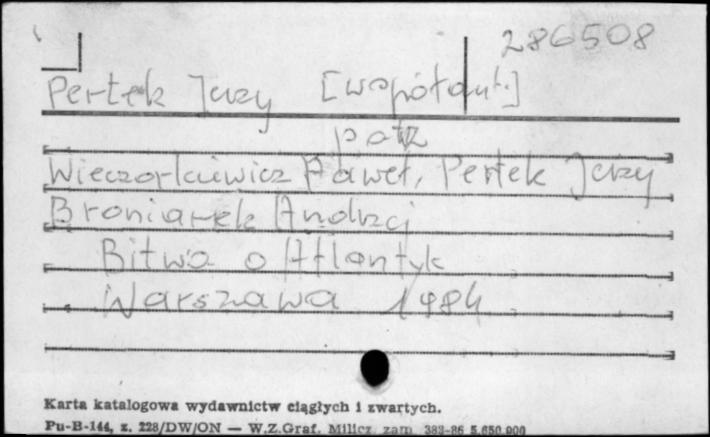 286508
Pertek Jerzy [współaut.]
patrz
Wieczorkiewicz Paweł, Pertek Jerzy
Broniarek Andrzej
Bitwa o Atlantyk
Warszawa 1984
Karta katalogowa wydawnictw ciągłych i zwartych.
Pu-B-144, z. 228/DW/ON — W.Z.Graf. Milicz zam 383-86 5.650.000